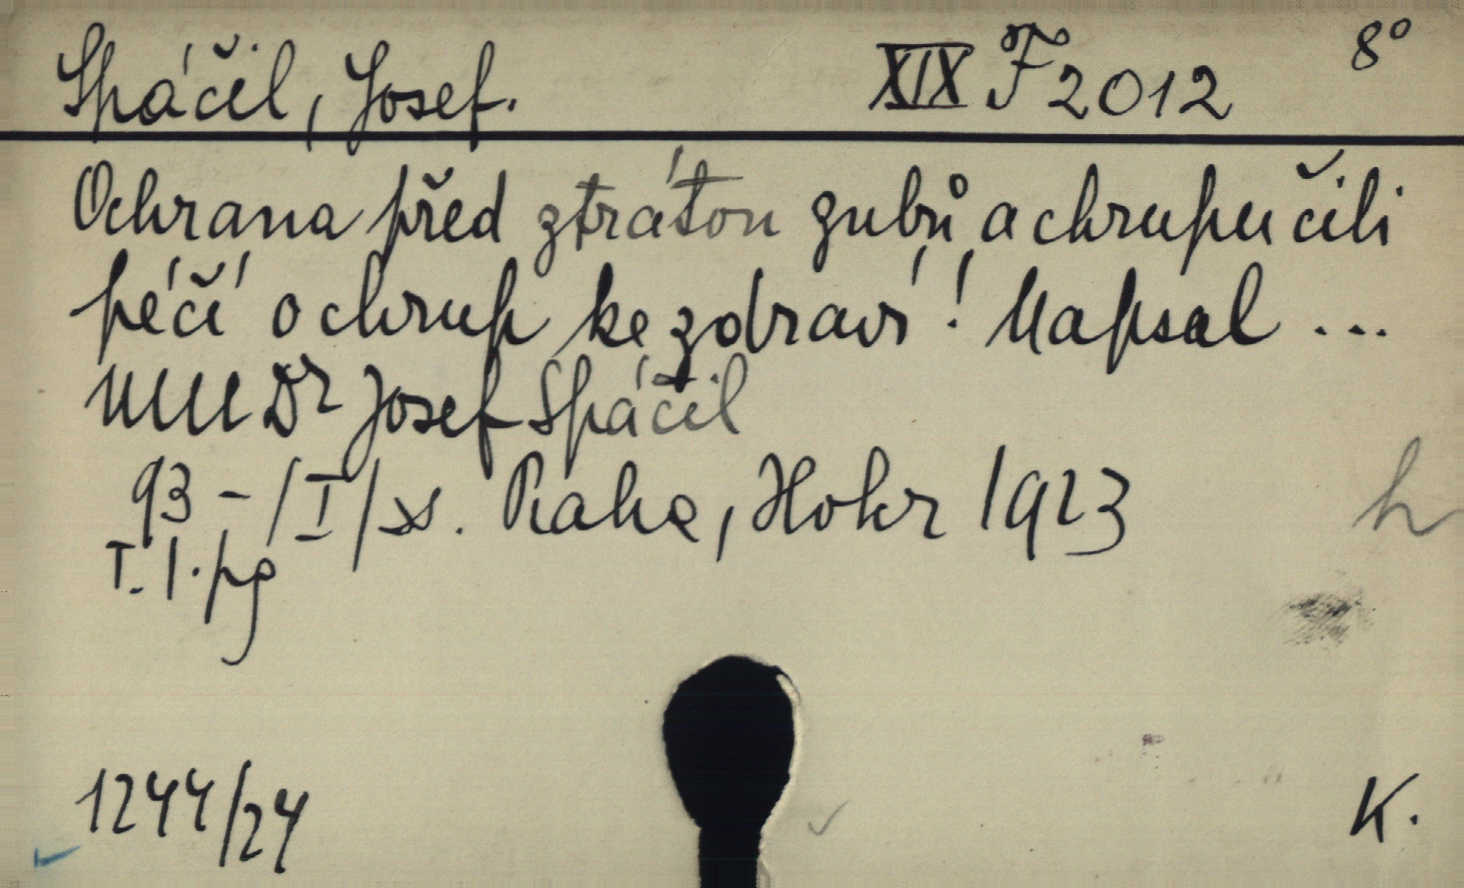 Spáčil, Josef. XIX F 2012 8°
Ochrana před ztrátou zubů a chrupu čili
péčí o chrup ke zdraví! Napsal ...
MUDr Josef Spáčil
93 - /I/ s. Praha, Hokr 1923
T. 1. pg
h
1244/24
K.